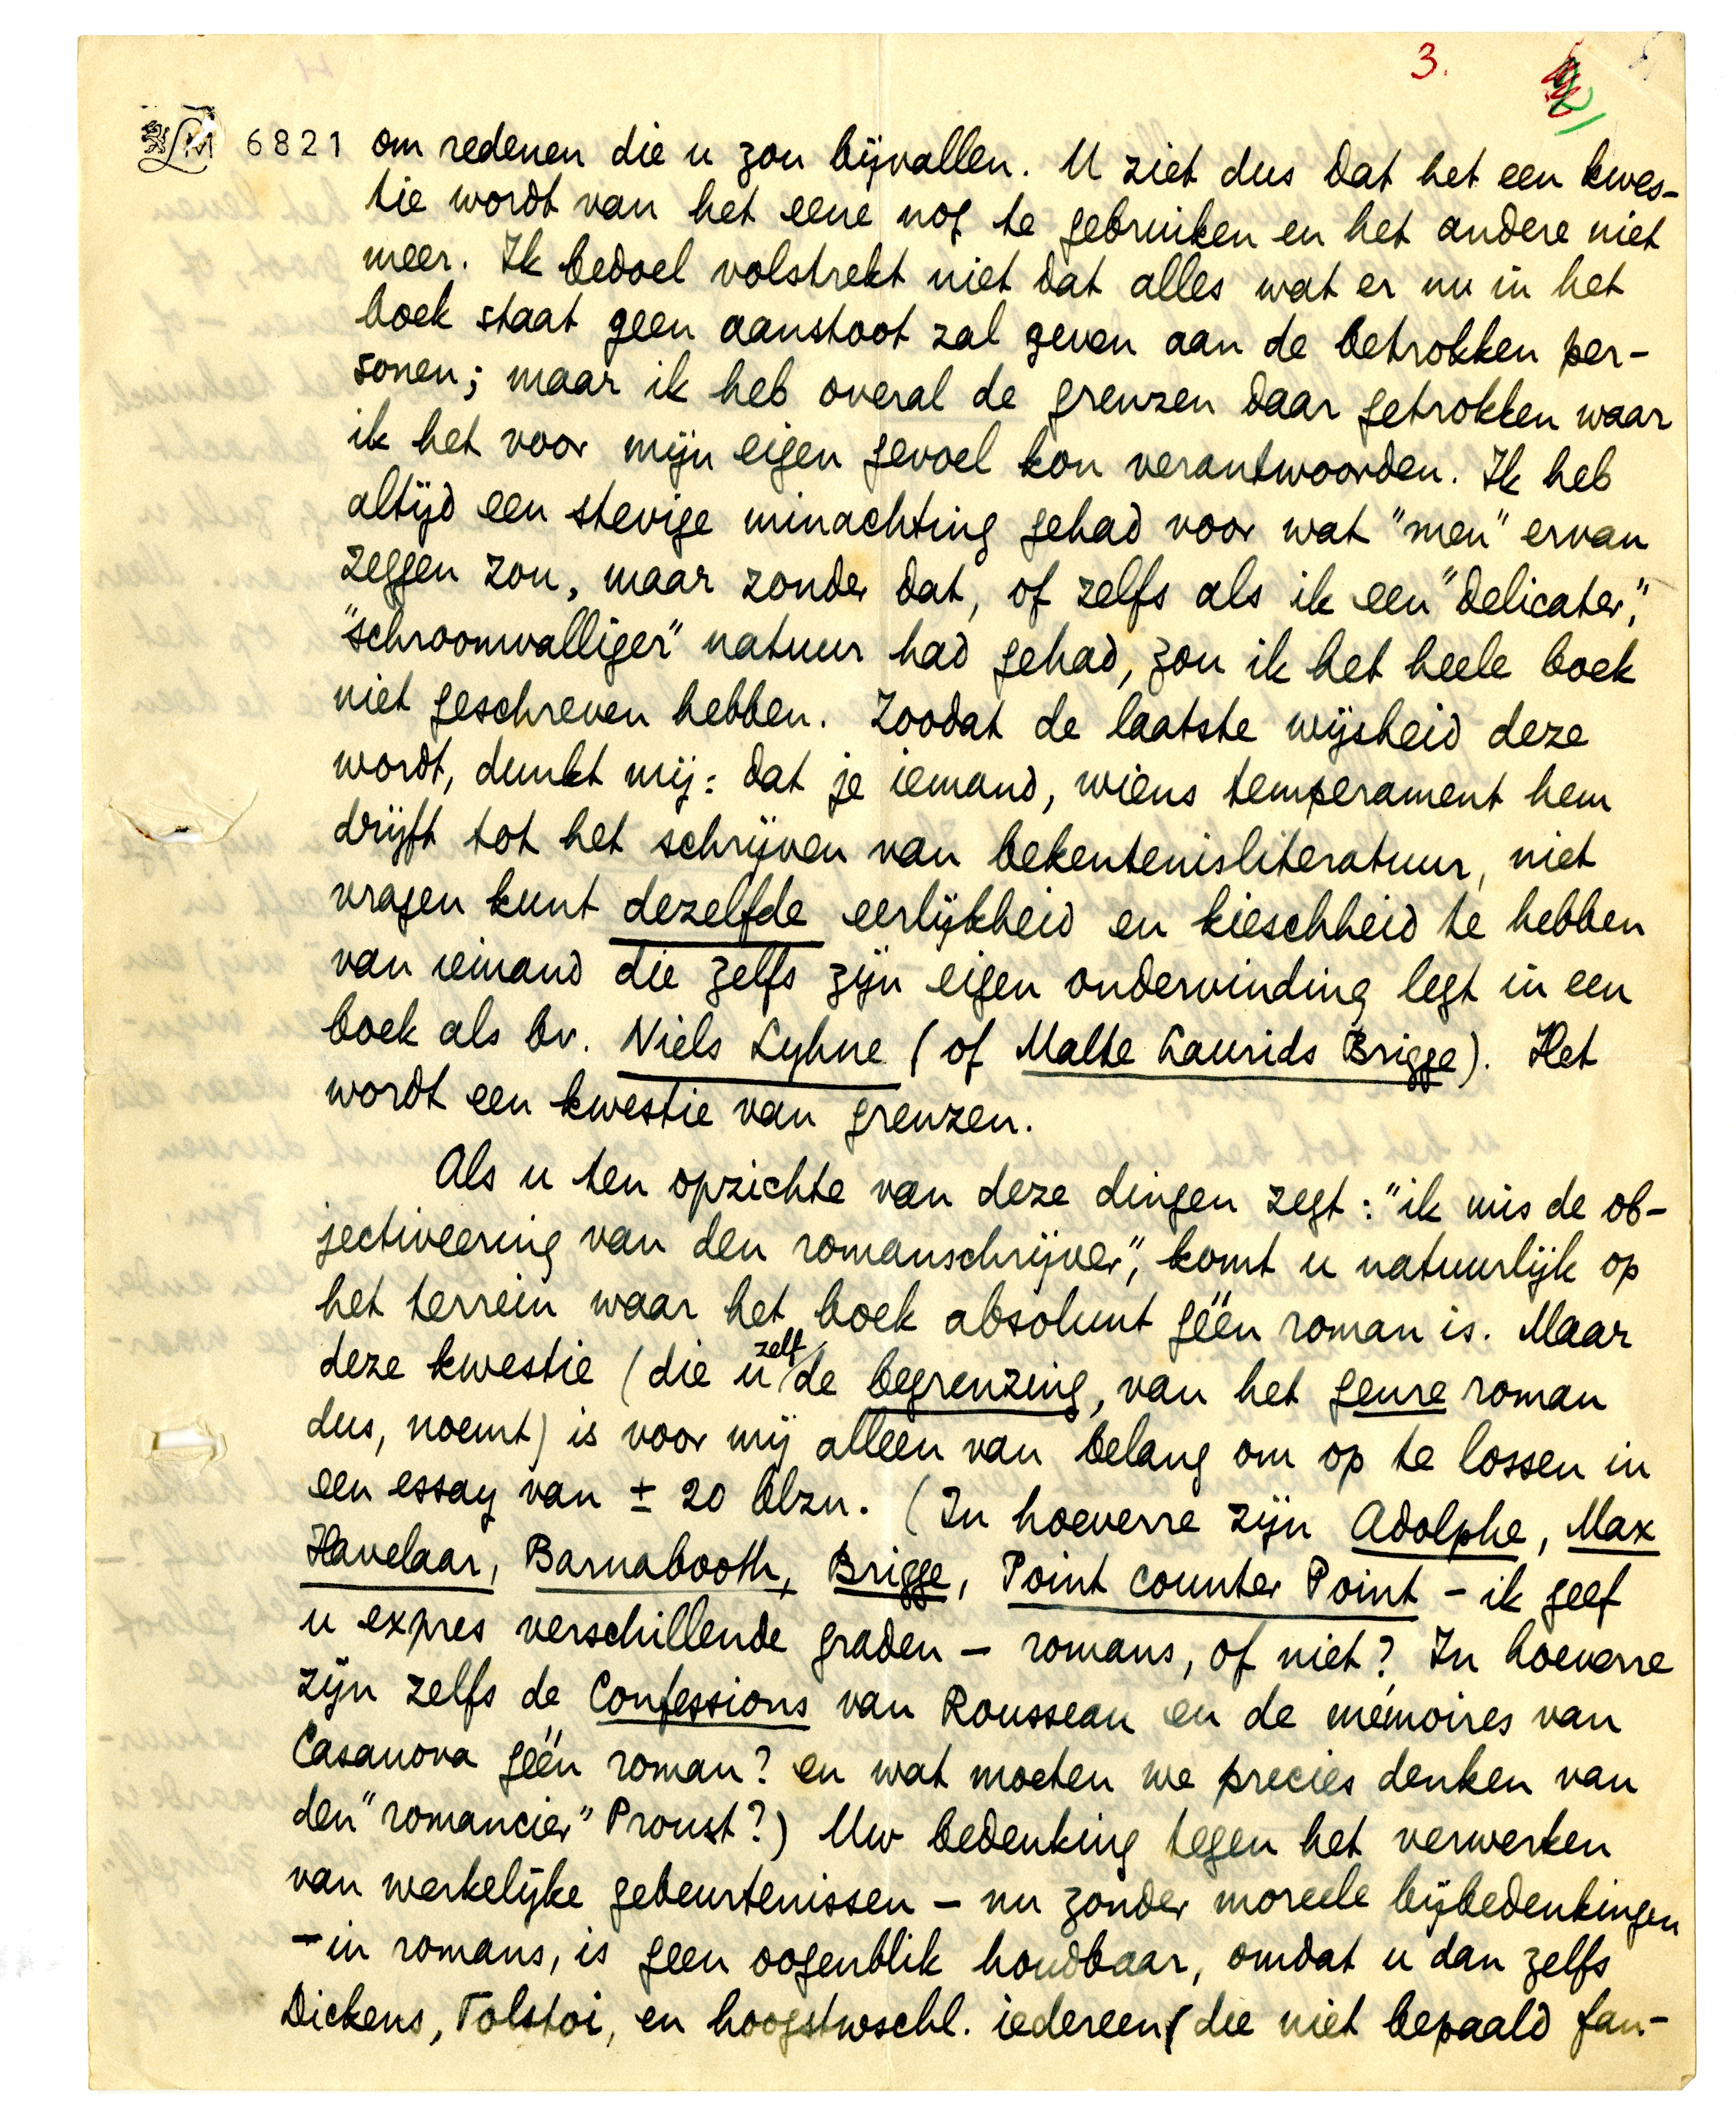 3.
LM 6821
om redenen die u zou bijvallen. U ziet dus dat het een kwes-
tie wordt van het eene nog te gebruiken en het andere niet
meer. Ik bedoel volstrekt niet dat alles wat er nu in het
boek staat geen aanstoot zal geven aan de betrokken per-
sonen; maar ik heb overal de grenzen daar getrokken waar
ik het voor mijn eigen gevoel kon verantwoorden. Ik heb
altijd een stevige minachting gehad voor wat "men" ervan
zeggen zou, maar zonder dat, of zelfs als ik een "delicater",
"schroomvalliger" natuur had gehad, zou ik het heele boek
niet geschreven hebben. Zoodat de laatste wijsheid deze
wordt, dunkt mij: dat je iemand, wiens temperament hem
drijft tot het schrijven van bekentenisliteratuur, niet
vragen kunt dezelfde eerlijkheid en kieschheid te hebben
van iemand die zelfs zijn eigen ondervinding legt in een
boek als bv. Niels Lyhne (of Malte Laurids Brigge). Het
wordt een kwestie van grenzen.
Als u ten opzichte van deze dingen zegt: "ik mis de ob-
jectiveering van den romanschrijver", komt u natuurlijk op
het terrein waar het boek absoluut géén roman is. Maar
deze kwestie (die u zelf de begrenzing, van het genre roman
dus, noemt) is voor mij alleen van belang om op te lossen in
een essay van ± 20 blzn. (In hoeverre zijn Adolphe, Max
Havelaar, Barnabooth, Brigge, Point Counter Point - ik geef
u expres verschillende graden - romans, of niet? In hoeverre
zijn zelfs de Confessions van Rousseau en de mémoires van
Casanova géén roman? en wat moeten we precies denken van
den "romancier" Proust?) Uw bedenking tegen het verwerken
van werkelijke gebeurtenissen - nu zonder moreele bijbedenkingen
- in romans, is geen oogenblik houdbaar, omdat u dan zelfs
Dickens, Tolstoi, en hoogstwschl. iedereen (die niet bepaald fan-